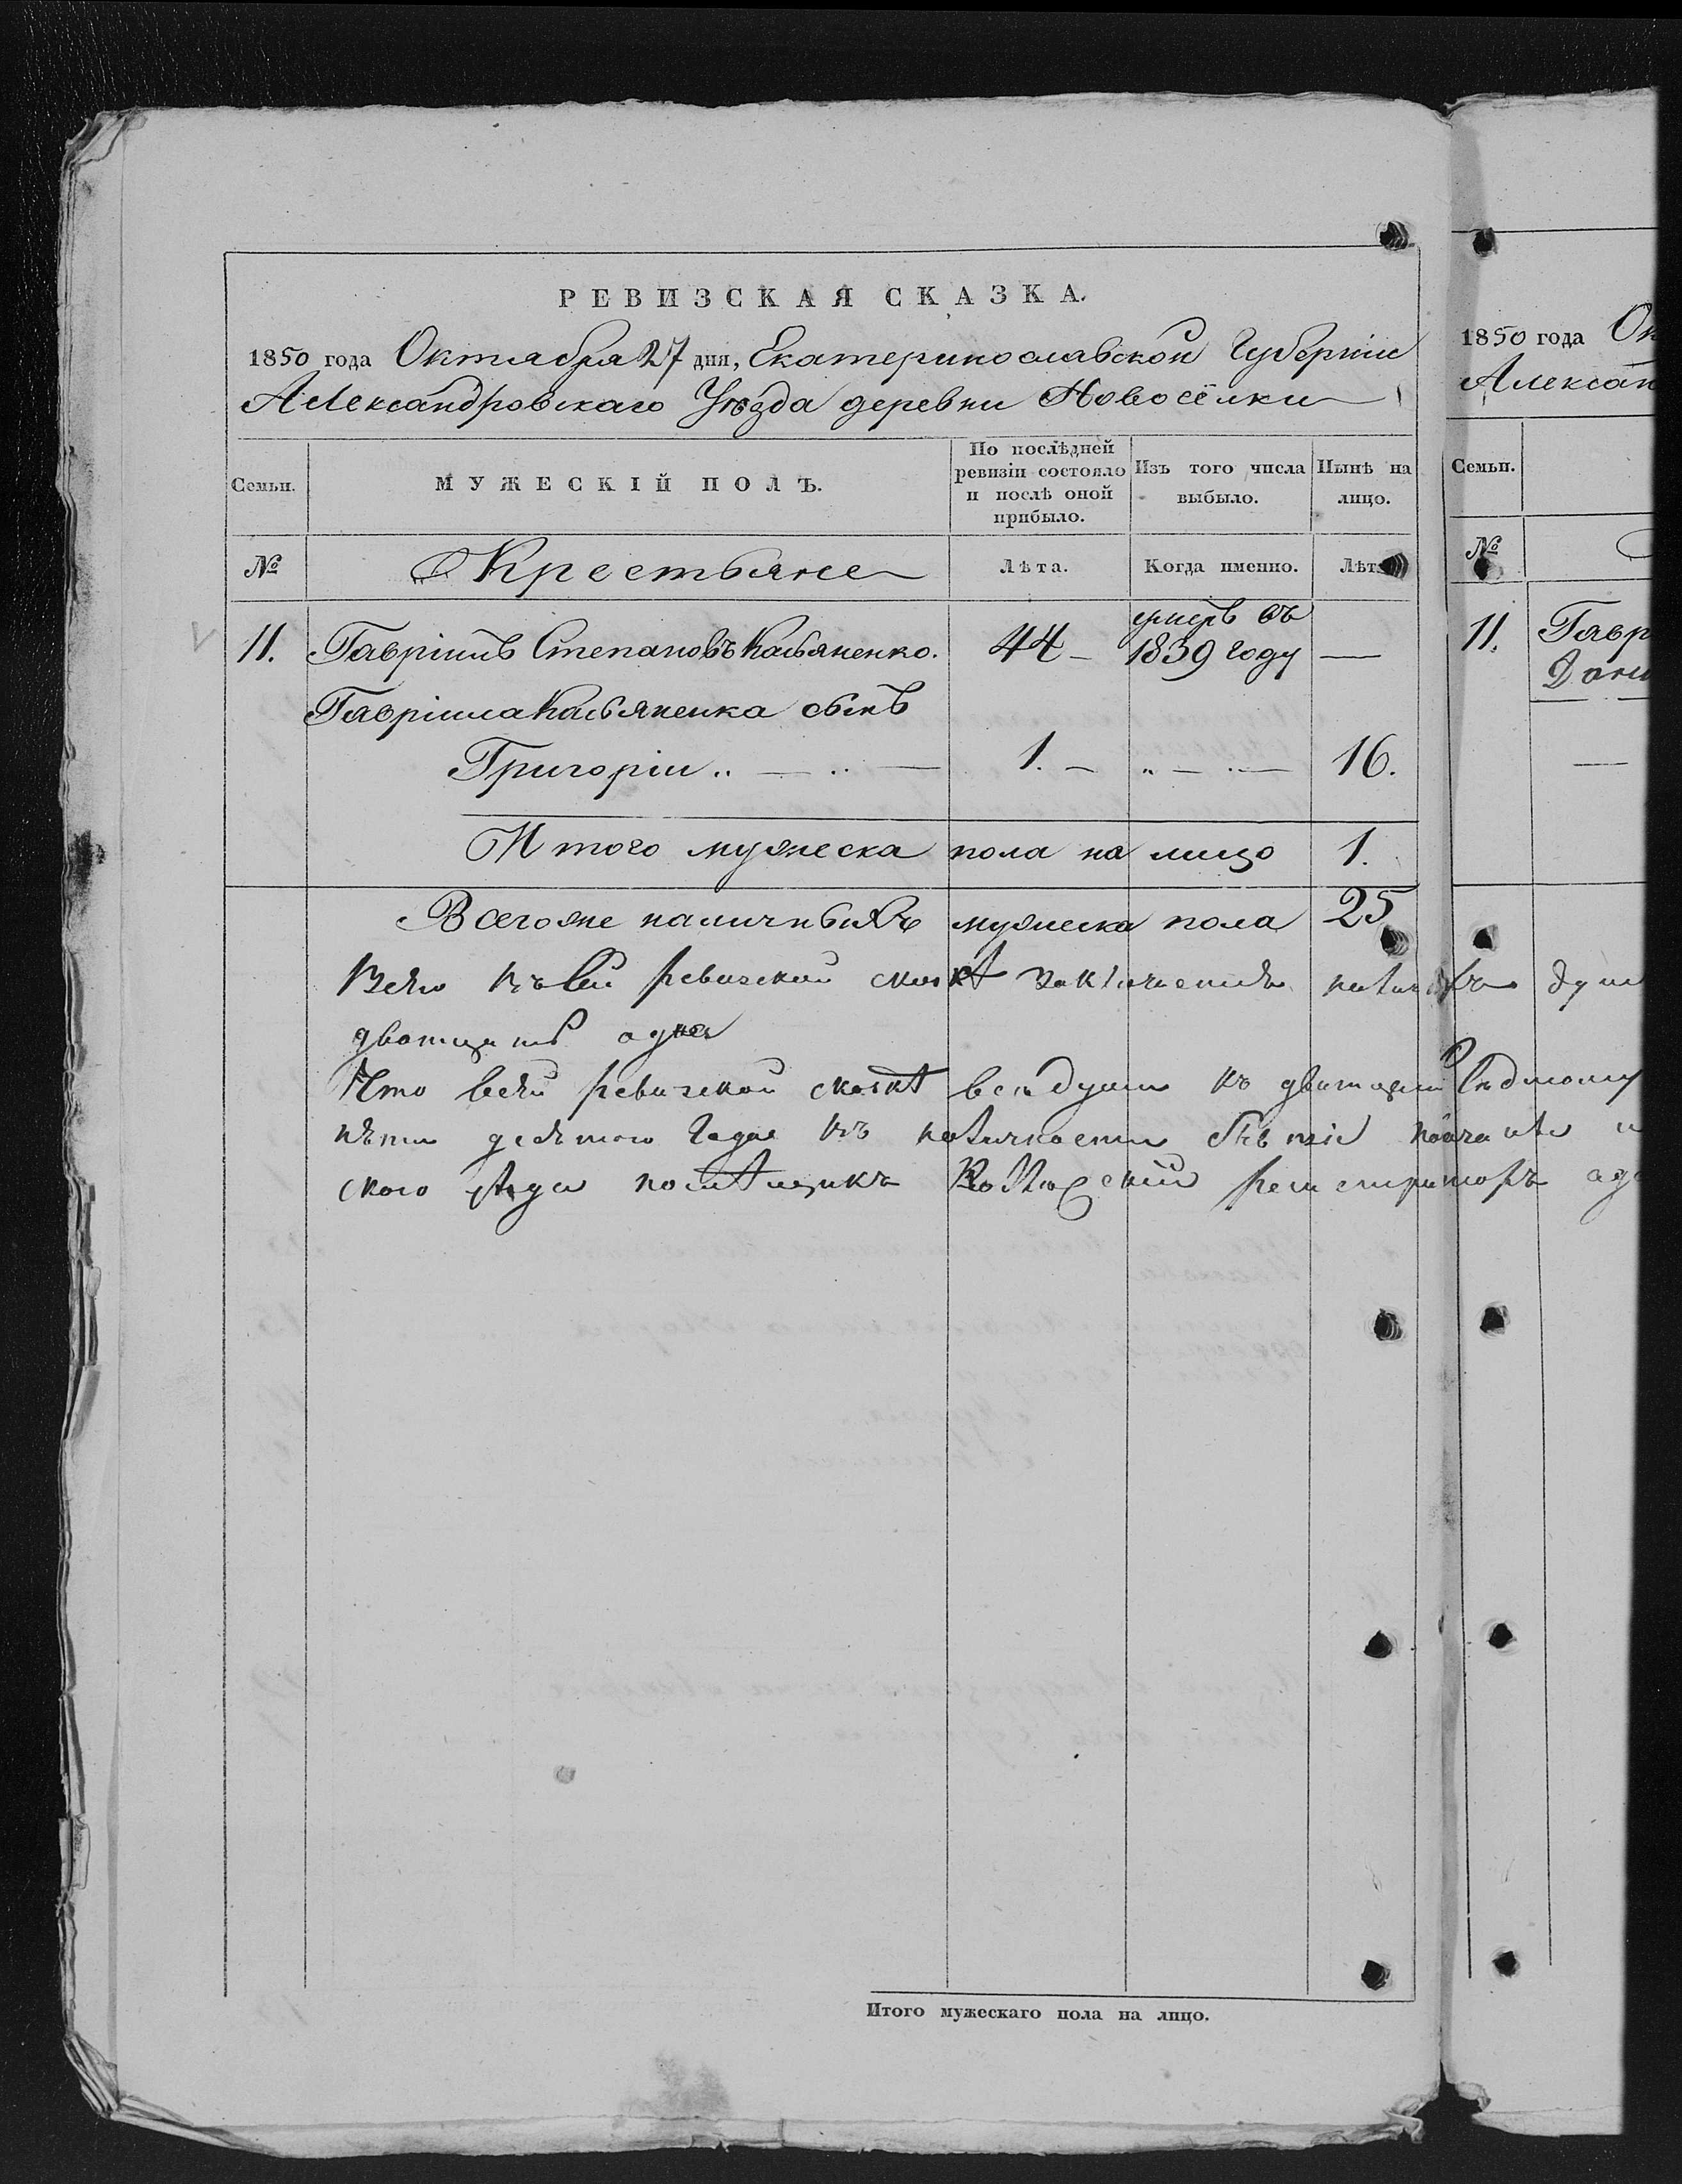 РЕВИЗСКАЯ СКАЗКА.
1850 года Октября 27 дня, Екатеринославской Губерніи
Александровскаго Уѣзда деревни Новосёлки
Семьи.
МУЖЕСКІЙ ПОЛЪ.
По послѣдней ревизіи состояло и послѣ оной прибыло.
Изъ того числа выбыло.
Нынѣ на лицо.
№
Крестьяне
Лѣта.
Когда именно.
Лѣта
11. Гавріилъ Степановъ Касьяненко. 44 – умеръ въ 1839 году —
Гавріила Касьяненка сынъ
Григоріи .. — .. — 1. – „ — . — 16.
Итого мужеска пола на лицо 1.
Всего же наличныхъ мужеска пола 25
Всего въ сей ревизской сказкѣ заключается душ
двατцать одна
Что всей ревизской сказкѣ все души къ дватцати седмому
десятого года въ наличности
ского уезда помѣщикъ Колюжский регистраторъ
1850 года Ок
Александ
Семьи.
№
11. Гавр